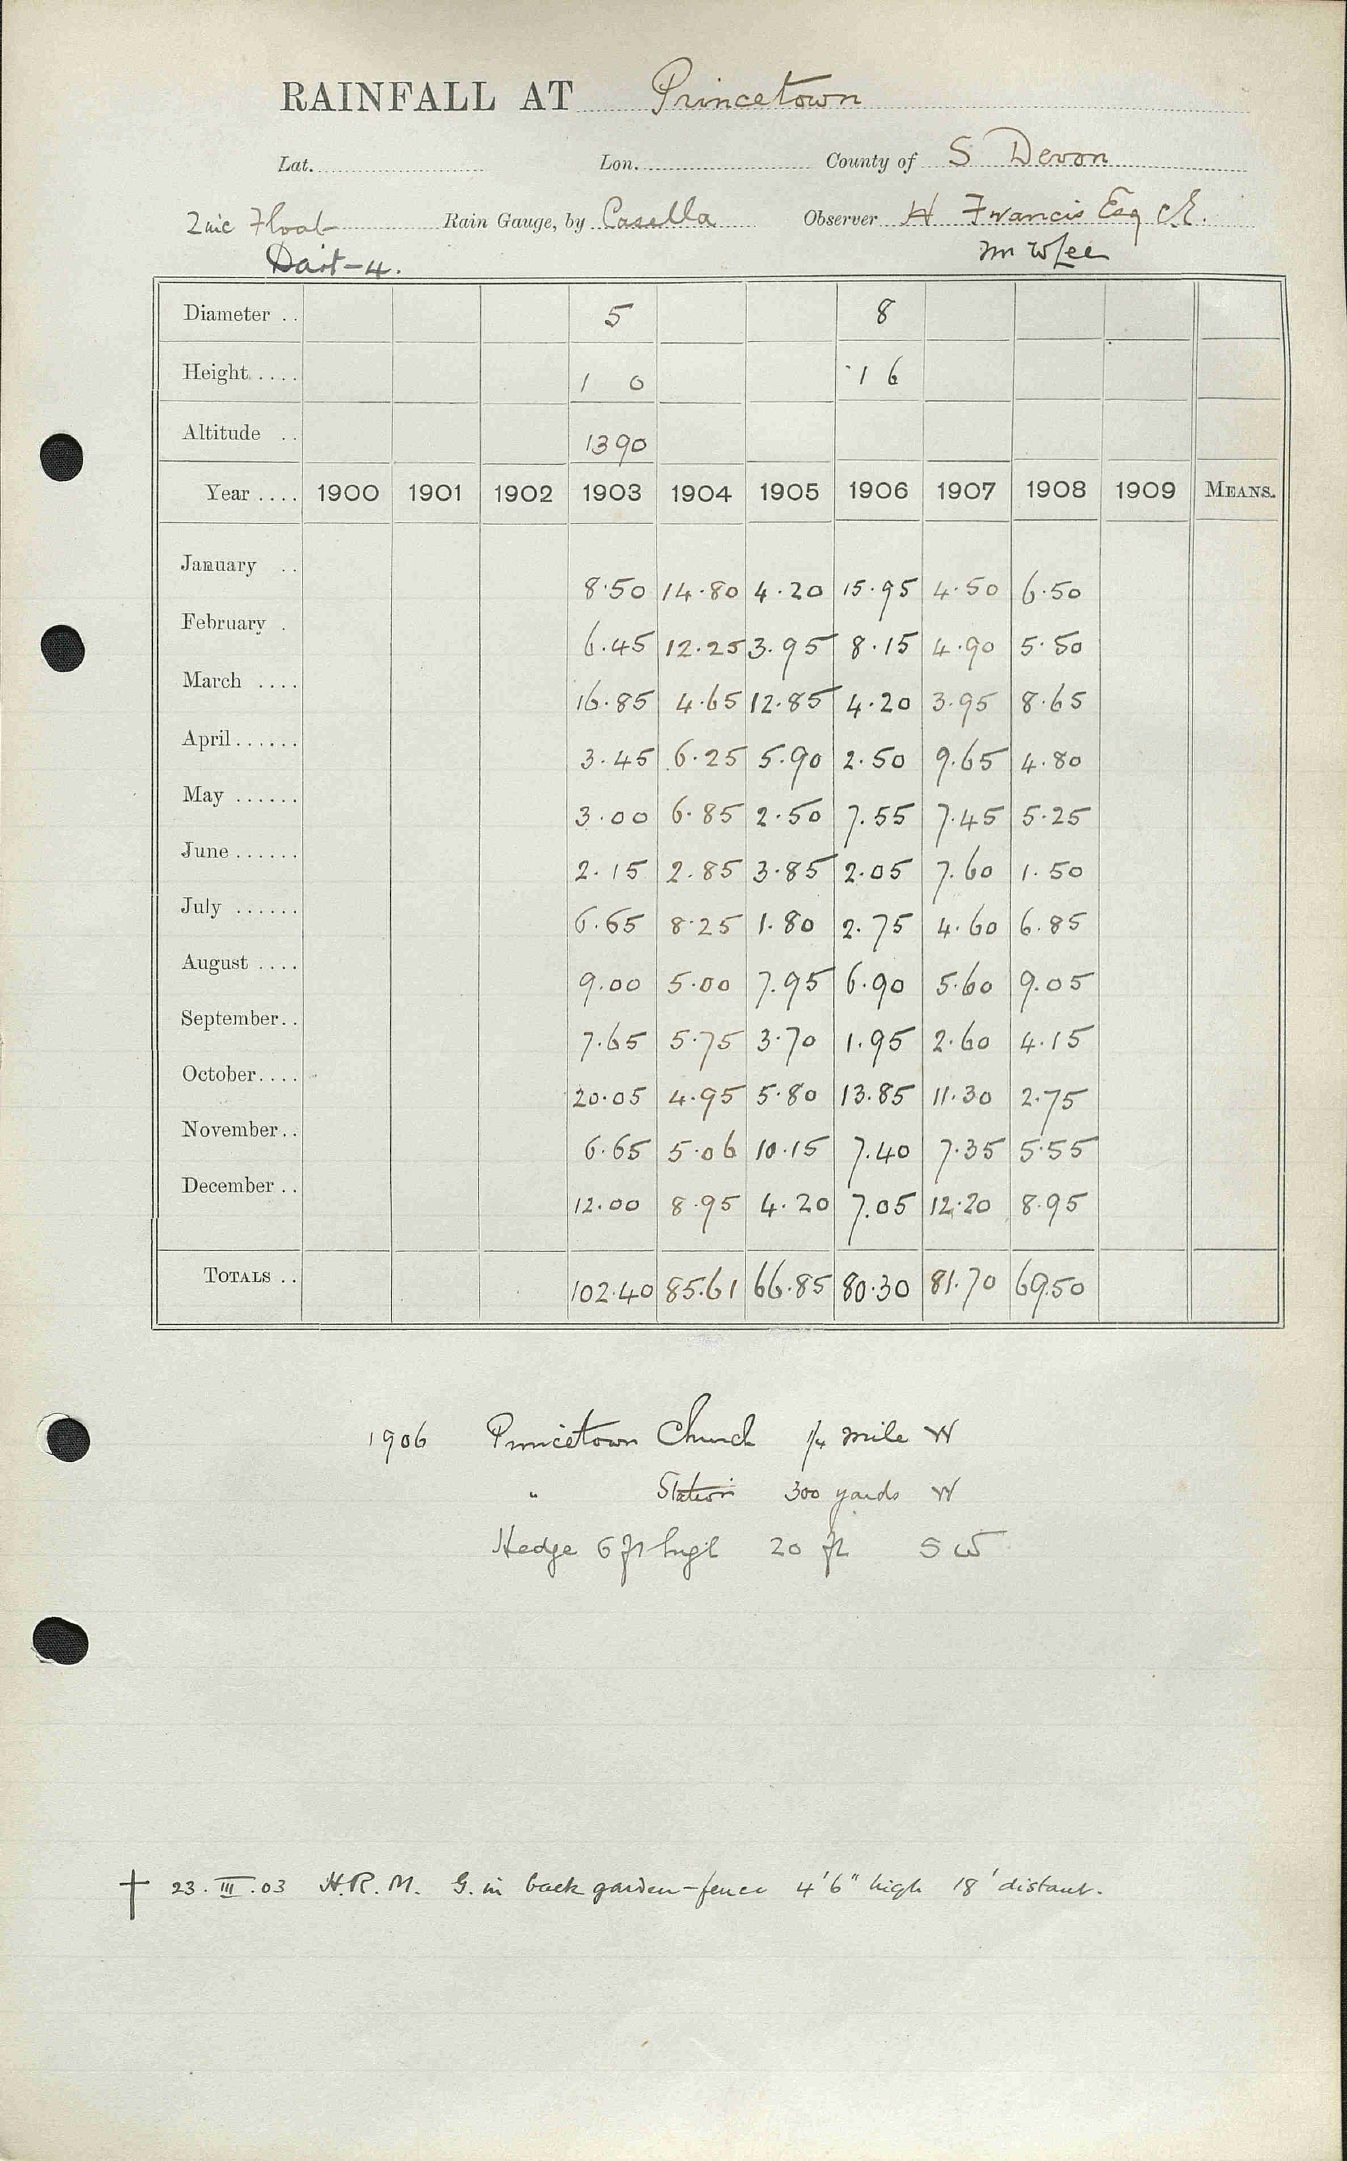 RAINFALL AT Princetown
Lat. Lon. County of S Devon
Zinc Float Rain Gauge, by Casella Observer H Francis Esq CE.
Dart-4. Mr W Lee
Diameter .. 5 8
Height .... 1 0 1 6
Altitude .. 1390
Year .... 1900 1901 1902 1903 1904 1905 1906 1907 1908 1909 MEANS.
January .. 8.50 14.80 4.20 15.95 4.50 6.50
February . 6.45 12.25 3.95 8.15 4.90 5.50
March .... 16.85 4.65 12.85 4.20 3.95 8.65
April ...... 3.45 6.25 5.90 2.50 9.65 4.80
May ...... 3.00 6.85 2.50 7.55 7.45 5.25
June ...... 2.15 2.85 3.85 2.05 7.60 1.50
July ...... 6.65 8.25 1.80 2.75 4.60 6.85
August .... 9.00 5.00 7.95 6.90 5.60 9.05
September.. 7.65 5.75 3.70 1.95 2.60 4.15
October.... 20.05 4.95 5.80 13.85 11.30 2.75
November.. 6.65 5.06 10.15 7.40 7.35 5.55
December .. 12.00 8.95 4.20 7.05 12.20 8.95
TOTALS .. 102.40 85.61 66.85 80.30 81.70 69.50
1906 Princetown Church 1/4 mile W
" Station 300 yards W
Hedge 6 ft high 20 ft SW
† 23.III.03 H.R.M. G. in back garden-fence 4'6" high 18' distant.